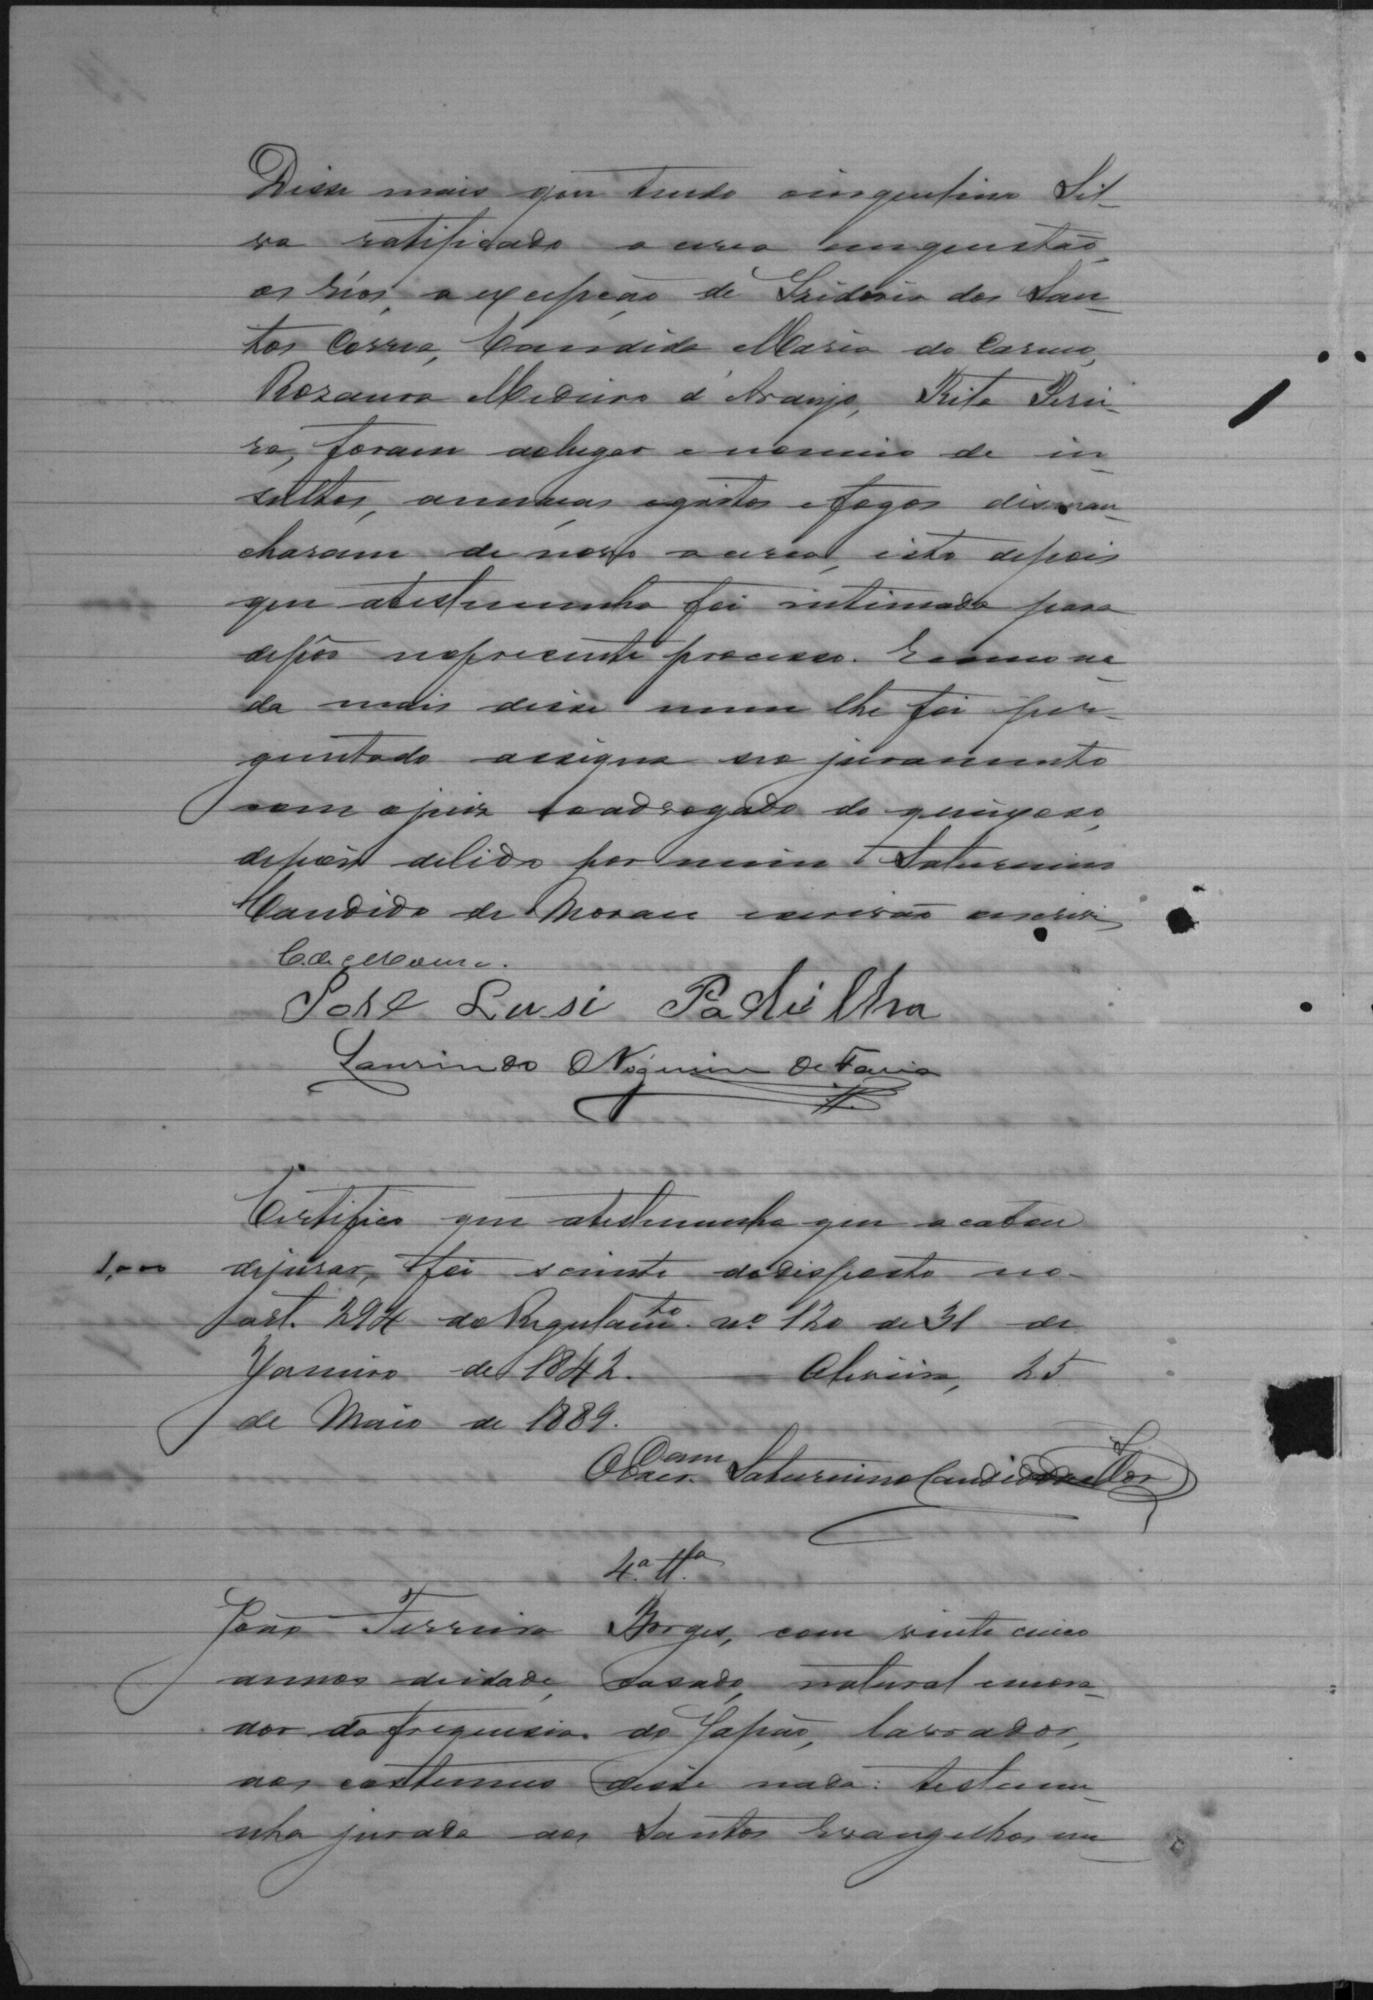 Disse mais que tendo oinquilino Sil-
va ratificado a cerca emquestão,
os réos, a excepção de Izidorio dos San-
tos Corrêa, Candida Maria do Carmo,
Rozaura Medeiros d'Araujo, Rita Perei-
ra, foram aolugar e nomeio de in-
sultos, ameaças egritos e fogos disman-
charam de novo a cerca, isto depois
que atestemunha foi intimada para
depôr nopresente processo. E como na-
da mais disse nem lhe foi per-
guntado assigna seo juramento
com ojuiz eoadvogado do queixoso,
depois delido por mim Saturnino
Candido de Moraes escrivão escrevi
C. de Moura.
José Lusi Padilha
Laurindo Nogueira de Faria
Certifico que atestemunha que acabou
dejurar, foi sciente dodisposto no
1,000
art. 294 do Regulamto. nº 120 de 31 de
Janeiro de 1842. Oliveira, 25
de Maio de 1889.
O Escr. Saturnino Candido de Mor
4.ª Tª
João Ferreira Borges, com vinte cinco
annos deidade, casado, natural emora-
dor da freguesia do Japão, lavrador,
aos costumes disse nada: testemu-
nha jurada aos Santos Evangelhos em